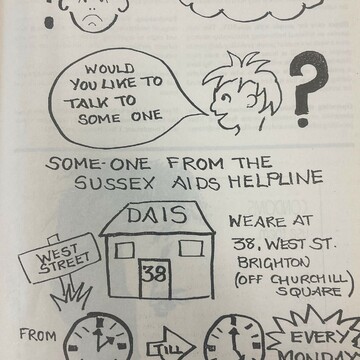 WOULD
YOU LIKE TO
TALK TO
SOME ONE
?
SOME-ONE FROM THE
SUSSEX AIDS HELPLINE
DAIS
38
WEST
STREET
WE ARE AT
38, WEST ST.
BRIGHTON
(OFF CHURCHILL
SQUARE)
FROM
TILL
EVERY
MONDAY